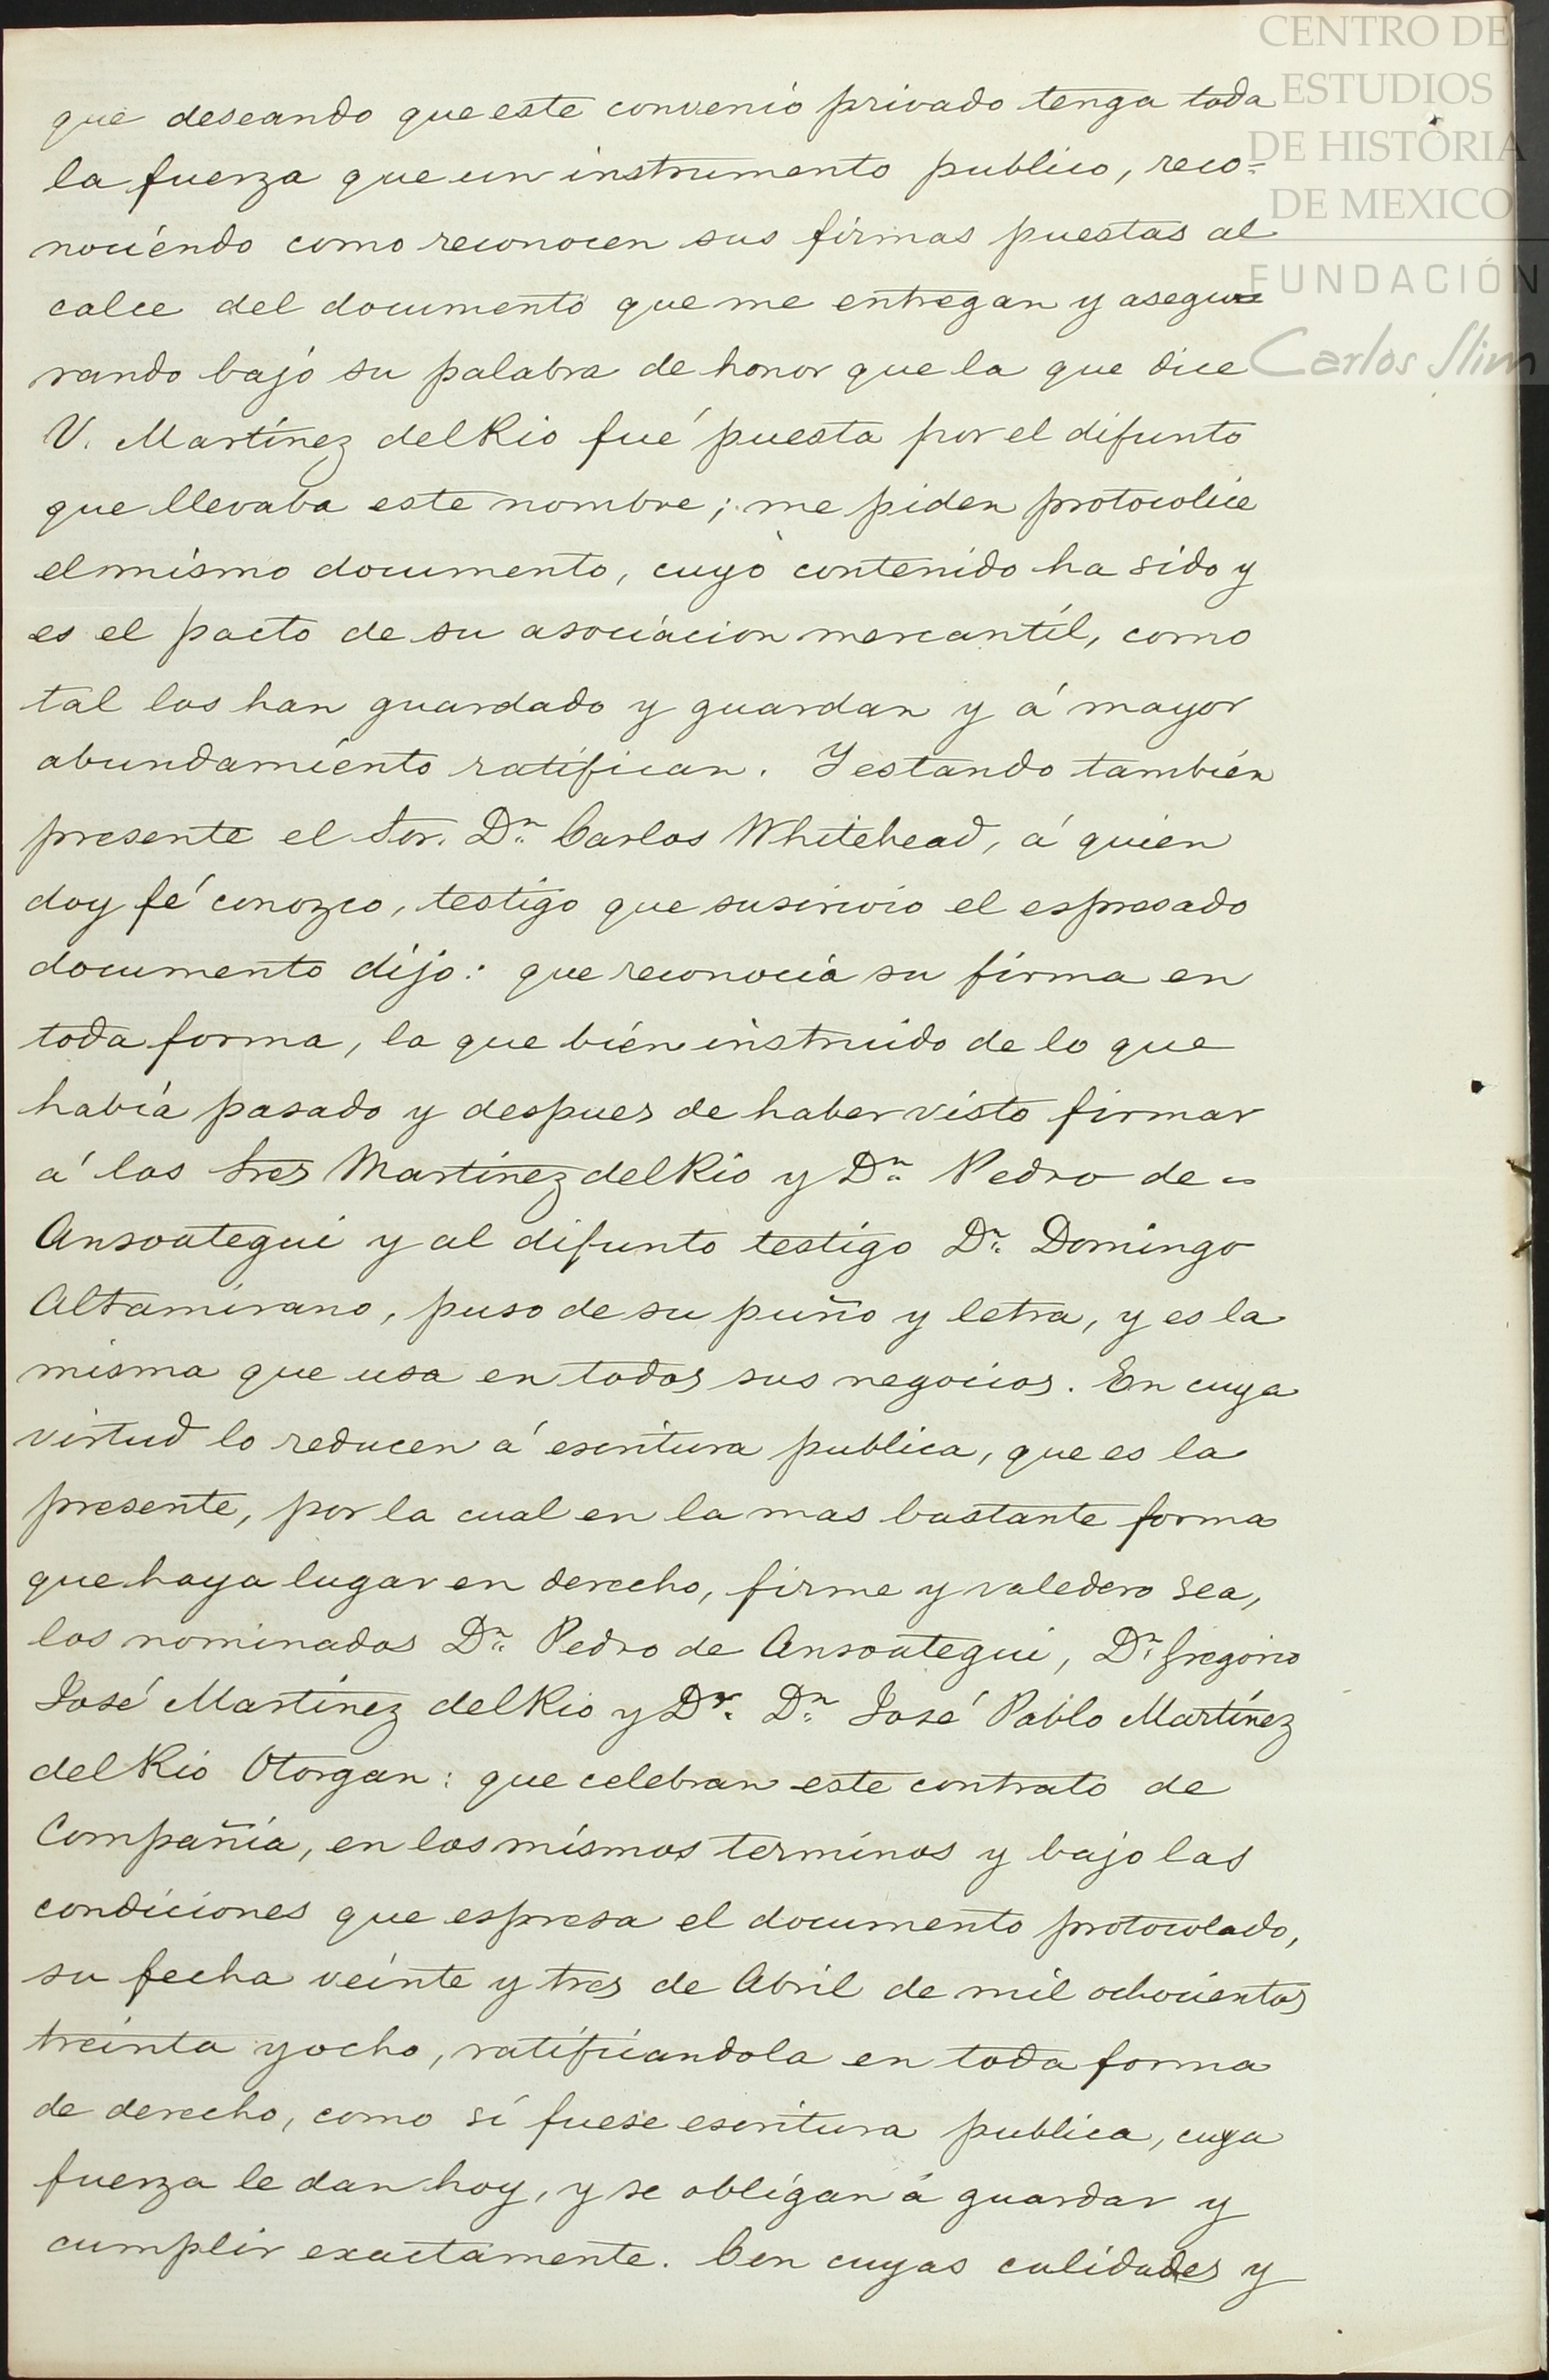 CENTRO DE
ESTUDIOS
DE HISTORIA
DE MEXICO
FUNDACIÓN
Carlos Slim
que deseando que este convenio privado tenga toda
la fuerza que un instrumento publico, reco=
nociendo como reconocen sus firmas puestas al
calce del documento que me entregan y asegu=
rando bajo su palabra de honor que la que dice
V. Martínez del Rio fué puesta por el difunto
que llevaba este nombre; me piden protocolice
el mismo documento, cuyo contenido ha sido y
es el pacto de su asociacion mercantíl, como
tal los han guardado y guardan y á mayor
abundamiento ratifican. Y estando también
presente el Sor. Dn. Carlos Whitehead, á quien
doy fé conozco, testigo que suscrivio el espresado
documento dijo: que reconocía su firma en
toda forma, la que bién instruido de lo que
había pasado y despues de haber visto firmar
á los Sres Martínez del Rio y Dn. Pedro de
Ansoategui y al difunto testigo Dn. Domingo
Altamirano, puso de su puño y letra, y es la
misma que usa en todos sus negocios. En cuya
virtud lo reducen á escritura publica, que es la
presente, por la cual en la mas bastante forma
que haya lugar en derecho, firme y valedero sea,
los nominados Dn. Pedro de Ansoategui, Dn. Gregorio
José Martínez del Rio y Dr. Dn. José Pablo Martínez
del Rio Otorgan: que celebran este contrato de
Compañía, en los mismos terminos y bajo las
condiciones que espresa el documento protocolado,
su fecha veinte y tres de Abril de mil ochocientos
treinta y ocho, ratificandola en toda forma
de derecho, como sí fuese escritura publica, cuya
fuerza le dan hoy, y se obligan á guardar y
cumplir exactamente. Con cuyas calidades y